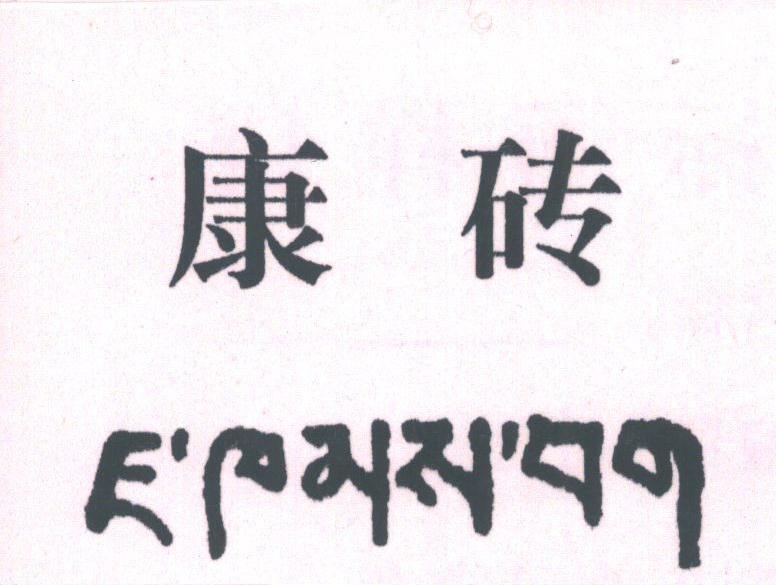 康砖
ཇ་ཁམས་བག